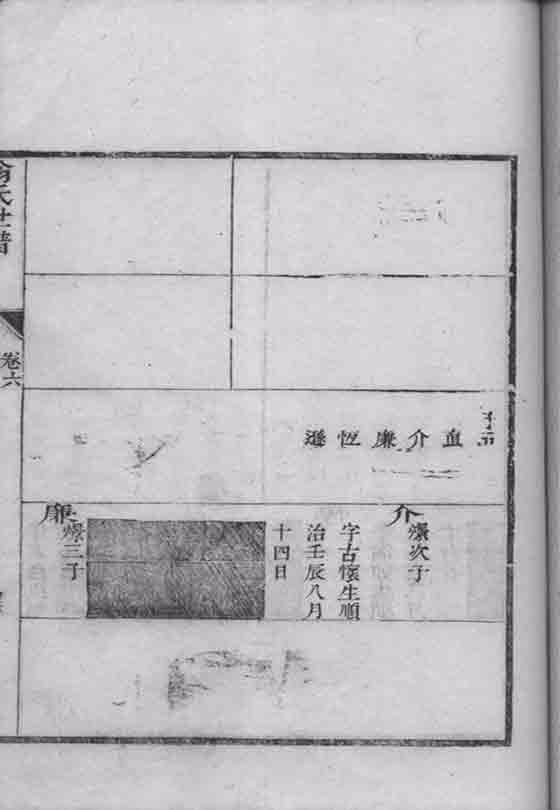 子五
直
介
廉
恆
遜
介
燦次子
字古懷生順
治壬辰八月
十四日
廉
燦三子
氏世譜
卷六